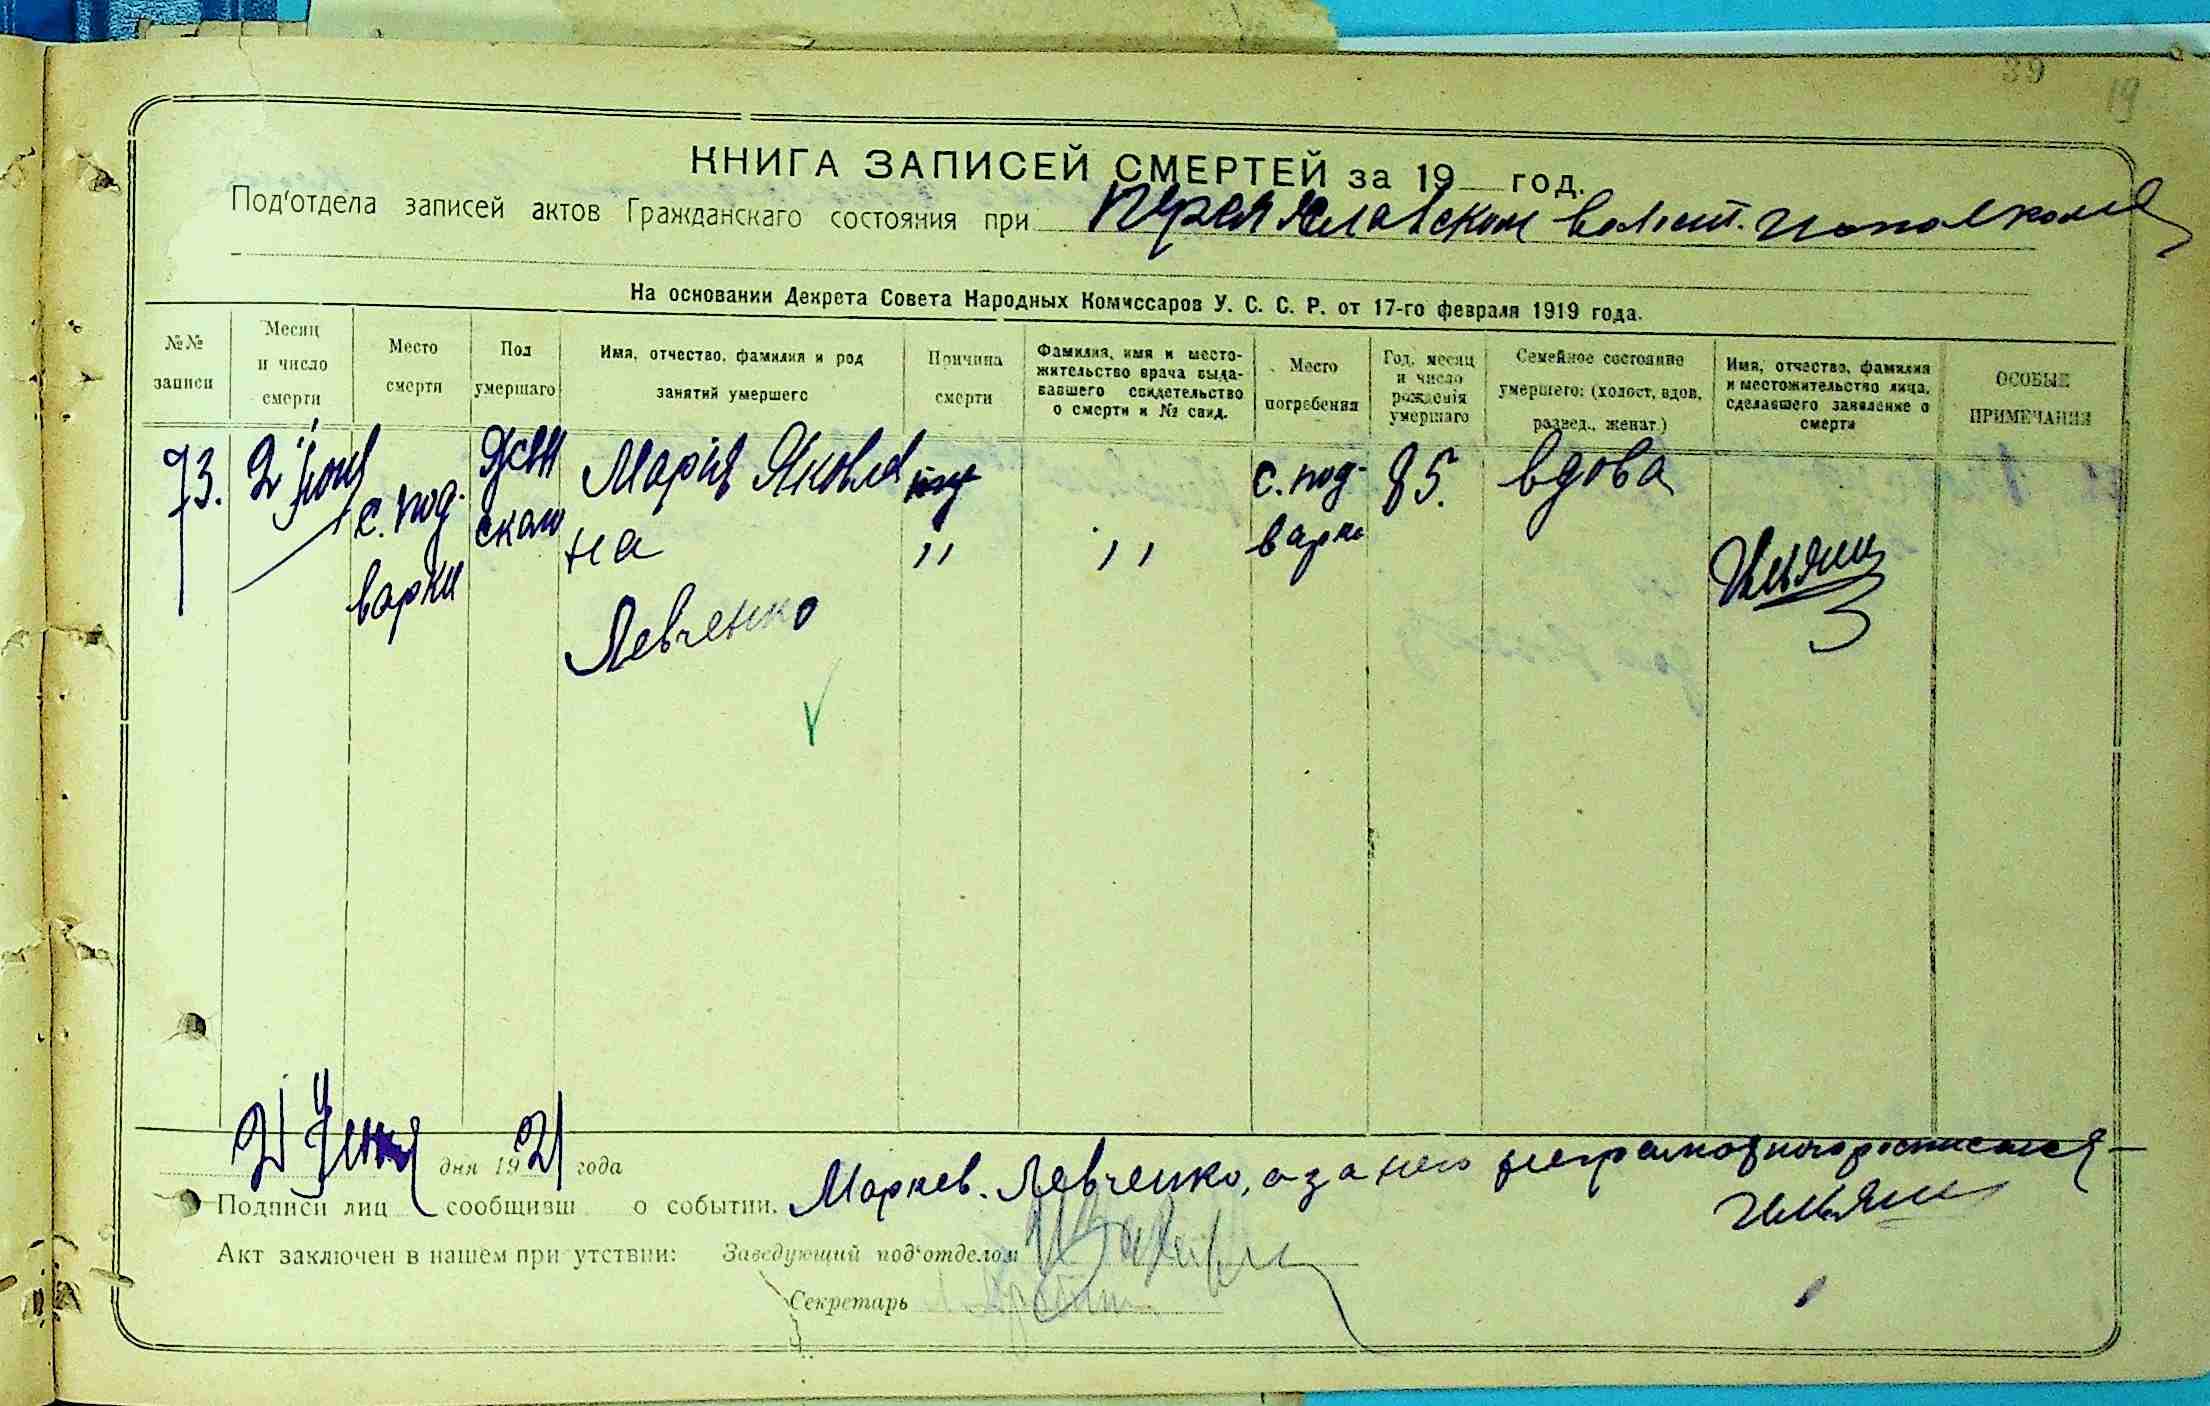 39
19
КНИГА ЗАПИСЕЙ СМЕРТЕЙ за 19 год.
Под'отдела записей актов Гражданскаго состояния при Переяславском волост.
На основании Декрета Совета Народных Комиссаров У. С. С. Р. от 17-го февраля 1919 года.
№№ записи
Месяц и число смерти
Место смерти
Пол умершаго
Имя, отчество, фамилия и род занятий умершего
Причина смерти
Фамилия, имя и местожительство врача выдавашего свидетельство о смерти и № свид.
Место погребения
Год, месяц и число рождения умершаго
Семейное состояние умершего: (холост, вдов, развед., женат.)
Имя, отчество, фамилия и местожительство лица, сделавшего заявление о смерти
ОСОБЫЕ ПРИМЕЧАНИЯ
73.
2 июня
с. Под-
варки
женск
Мария Яковлев
на
Левченко
,,
,,
с. Под-
варки
85.
вдова
дня 1921 года
Подписи лиц сообщивш о событии. Левченко, а за него неграмотного росписался
Акт заключен в нашем при утствии: Заведующий под'отделом
Секретарь